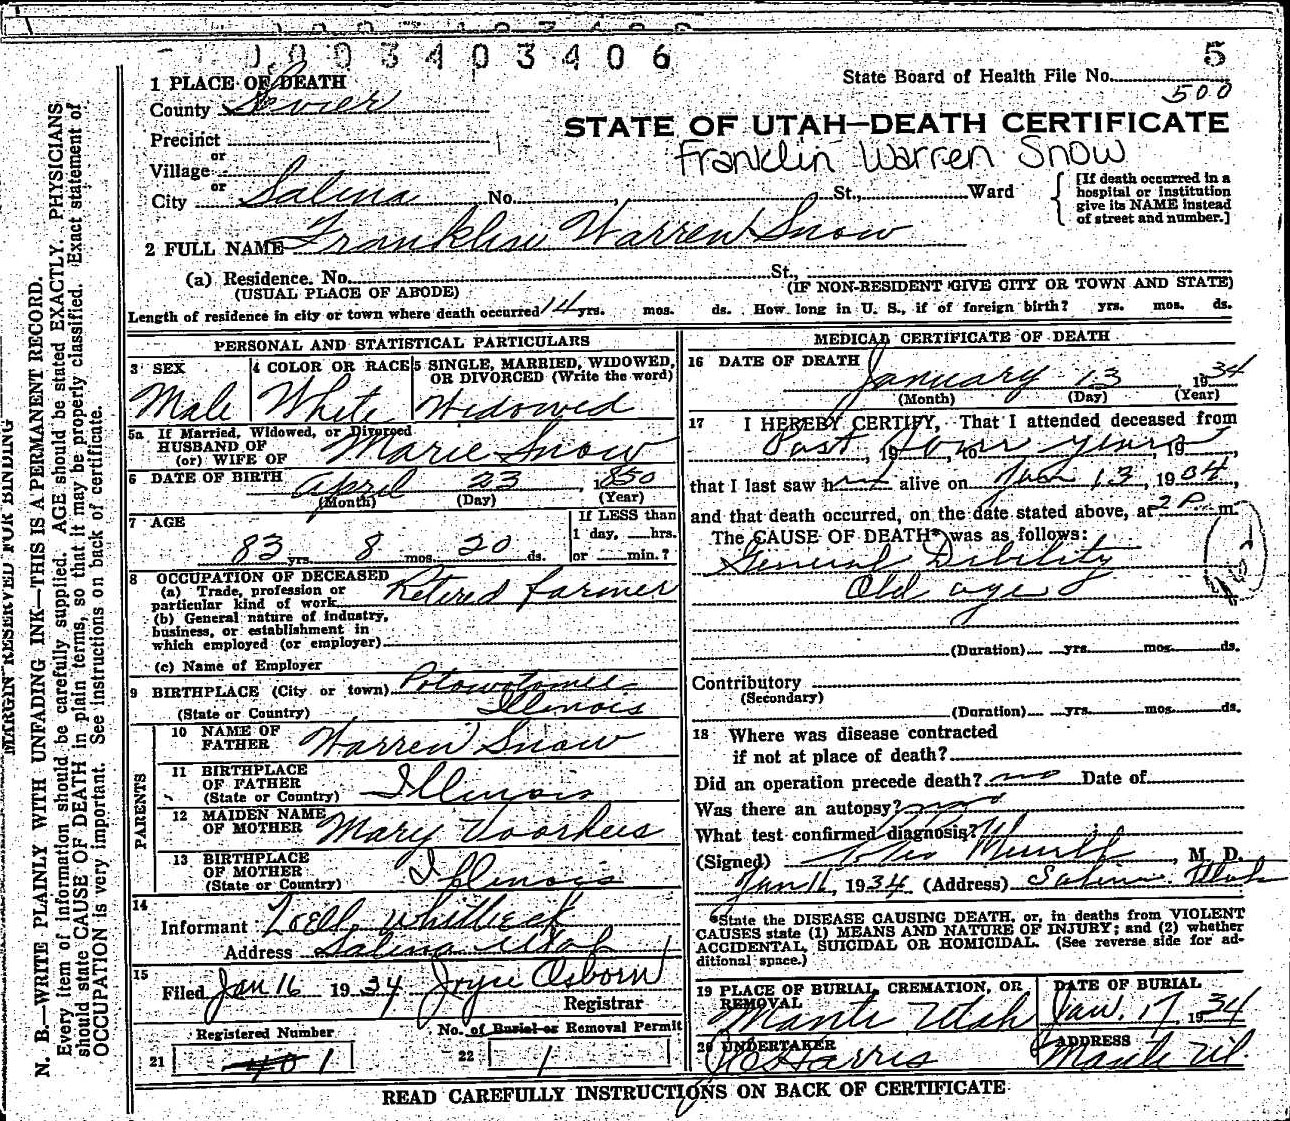 1003403406
5
State Board of Health File No.
500
1 PLACE OF DEATH
County Sevier
STATE OF UTAH—DEATH CERTIFICATE
Precinct
Franklin Warren Snow
or
Village
or
City Salina No. , St., Ward
[If death occurred in a
hospital or institution
give its NAME instead
of street and number.]
2 FULL NAME Franklin Warren Snow
(a) Residence. No. St.,
(USUAL PLACE OF ABODE) (IF NON-RESIDENT GIVE CITY OR TOWN AND STATE)
Length of residence in city or town where death occurred 14 yrs. mos. ds. How long in U. S., if of foreign birth? yrs. mos. ds.
PERSONAL AND STATISTICAL PARTICULARS
3 SEX
Male
4 COLOR OR RACE
White
5 SINGLE, MARRIED, WIDOWED,
OR DIVORCED (Write the word)
Widowed
5a If Married, Widowed, or Divorced
HUSBAND OF
(or) WIFE OF Marie Snow
6 DATE OF BIRTH April 23, 1850
(Month) (Day) (Year)
7 AGE
83 yrs. 8 mos. 20 ds.
If LESS than
1 day, hrs.
or min.?
8 OCCUPATION OF DECEASED
(a) Trade, profession or
particular kind of work Retired farmer
(b) General nature of industry,
business, or establishment in
which employed (or employer)
(c) Name of Employer
9 BIRTHPLACE (City or town) Potowotomee
(State or Country) Illinois
PARENTS
10 NAME OF
FATHER Warren Snow
11 BIRTHPLACE
OF FATHER
(State or Country) Illinois
12 MAIDEN NAME
OF MOTHER Mary Voorhees
13 BIRTHPLACE
OF MOTHER
(State or Country) Illinois
14
Informant Loell Whitbeck
Address Salina Utah
15
Filed Jan 16 1934 Joyce Osborn
Registrar
Registered Number
21 401
No. of Burial or Removal Permit
22 1
MEDICAL CERTIFICATE OF DEATH
16 DATE OF DEATH
January 13, 1934
(Month) (Day) (Year)
17 I HEREBY CERTIFY, That I attended deceased from
Past , 19 four , to years , 19 ,
that I last saw him alive on Jan 13, 1934,
and that death occurred, on the date stated above, at 2 P. m.
The CAUSE OF DEATH* was as follows:
General Debility
Old age
(Duration) yrs. mos. ds.
Contributory
(Secondary)
(Duration) yrs. mos. ds.
18 Where was disease contracted
if not at place of death?
Did an operation precede death? no Date of
Was there an autopsy? no
What test confirmed diagnosis?
(Signed) , M. D.
Jan 16, 1934 (Address) Salina Utah
*State the DISEASE CAUSING DEATH, or, in deaths from VIOLENT
CAUSES state (1) MEANS AND NATURE OF INJURY; and (2) whether
ACCIDENTAL, SUICIDAL OR HOMICIDAL. (See reverse side for ad-
ditional space.)
19 PLACE OF BURIAL, CREMATION, OR
REMOVAL
Manti Utah
DATE OF BURIAL
Jan. 17, 1934
20 UNDERTAKER
Harris
ADDRESS
Manti Ut.
READ CAREFULLY INSTRUCTIONS ON BACK OF CERTIFICATE
MARGIN RESERVED FOR BINDING
N. B.—WRITE PLAINLY WITH UNFADING INK—THIS IS A PERMANENT RECORD.
Every item of information should be carefully supplied. AGE should be stated EXACTLY. PHYSICIANS
should state CAUSE OF DEATH in plain terms, so that it may be properly classified. Exact statement of
OCCUPATION is very important. See instructions on back of certificate.